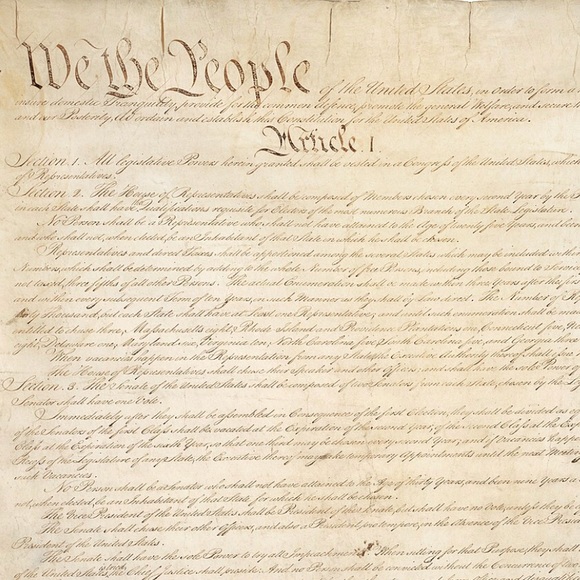 We the People of the United States, in Order to form a
insure domestic Tranquility, provide for the common defence, promote the general Welfare, and secure
and our Posterity, do ordain and establish this Constitution for the United States of America.
Article. I.
Section. 1. All legislative Powers herein granted shall be vested in a Congress of the United States, which
of Representatives.
Section. 2. The House of Representatives shall be composed of Members chosen every second Year by the
in each State shall have the Qualifications requisite for Electors of the most numerous Branch of the State Legislature.
No Person shall be a Representative who shall not have attained to the Age of twenty five Years, and been
and who shall not, when elected, be an Inhabitant of that State in which he shall be chosen.
Representatives and direct Taxes shall be apportioned among the several States which may be included within
Numbers, which shall be determined by adding to the whole Number of free Persons, including those bound to Service
not taxed, three fifths of all other Persons. The actual Enumeration shall be made within three Years after the first
and within every subsequent Term of ten Years, in such Manner as they shall by Law direct. The Number of
thirty Thousand, but each State shall have at Least one Representative; and until such enumeration shall be made
entitled to chuse three, Massachusetts eight, Rhode Island and Providence Plantations one, Connecticut five,
eight, Delaware one, Maryland six, Virginia ten, North Carolina five, South Carolina five, and Georgia three.
When vacancies happen in the Representation from any State, the Executive Authority thereof shall
The House of Representatives shall chuse their Speaker and other Officers; and shall have the sole Power of
Section. 3. The Senate of the United States shall be composed of two Senators from each State, chosen by the
Senator shall have one Vote.
Immediately after they shall be assembled in Consequence of the first Election, they shall be divided as
of the Senators of the first Class shall be vacated at the Expiration of the second Year, of the second Class at the
Class at the Expiration of the sixth Year, so that one third may be chosen every second Year; and if Vacancies
Recess of the Legislature of any State, the Executive thereof may make temporary Appointments until the next Meeting
such Vacancies.
No Person shall be a Senator who shall not have attained to the Age of thirty Years, and been nine Years a
not, when elected, be an Inhabitant of that State for which he shall be chosen.
The Vice President of the United States shall be President of the Senate, but shall have no Vote, unless they be
The Senate shall chuse their other Officers, and also a President pro tempore, in the Absence of the Vice
President of the United States.
The Senate shall have the sole Power to try all Impeachments. When sitting for that Purpose, they shall
of the United States is tried, the Chief Justice shall preside: And no Person shall be convicted without the Concurrence of